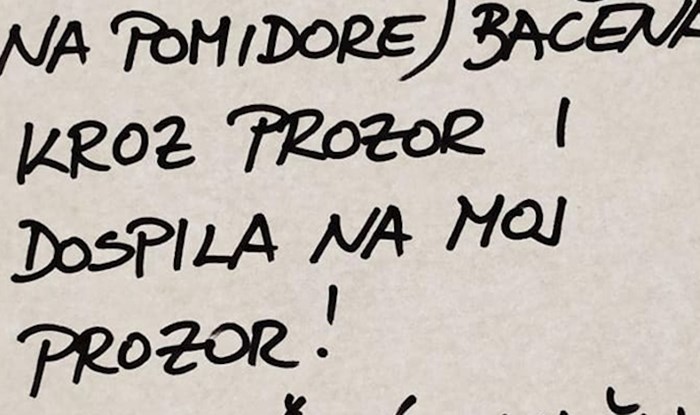 NA POMIDORE) BAČENA
KROZ PROZOR I
DOSPILA NA MOJ
PROZOR!